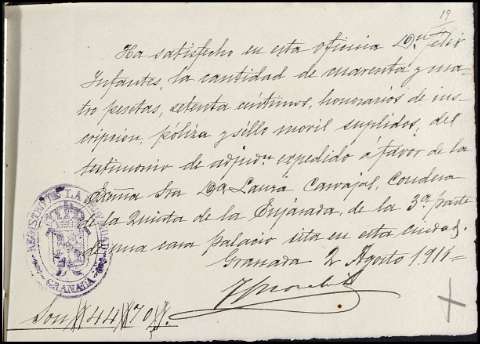 19
Ha satisfecho en esta oficina Dn. Felix
Infantes, la cantidad de cuarenta y cua-
tro pesetas, setenta céntimos, honorarios de ins-
cripcion, póliza y sello movil suplidos, del
testimonio de adjudon expedido a favor de la
Exma Sra Da Laura Carvajal, Condesa
de la Quinta de la Enjarada, de la 3a parte
de una casa palacio sita en esta ciudad.
Granada 2 Agosto 1911=
REGISTRO DE LA
GRANADA
Son 44 70